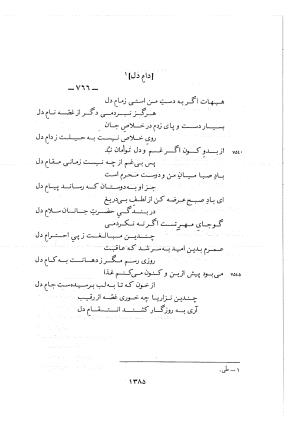 [دامِ دل]¹
ــ ۷۶۶ ــ
هیهات اگر به دستِ من استی زمامِ دل
هرگز نبردمی دگر از غصه نام دل
بسیار دست و پای زدم در خلاصِ جان
رویِ خلاص نیست به حیلت ز دامِ دل
۷۵۴۰ از بدوِ کون اگر غم و دل توأمان نبُد
پس بی غم از چه نیست زمانی مقام دل
بادِ صبا میانِ من و دوست محرم است
جز او به دوستان که رساند پیام دل
ای بادِ صبح عرضه کن از لطفِ بی‌دریغ
در بندگیِ حضرتِ جانان سلام دل
گو جایِ مهرِ تست اگر نه نکردمی
چندین مبالغت ز پیِ احترامِ دل
عمرم بدین امید به سر شد که عاقبت
روزی رسم مگر ز دهانت به کام دل
۷۵۴۵ می‌بود پیش ازین و کنون می‌کنم غذا
از خون که تا به لب برسیده‌ست جام دل
چندین نزاریا چه خوری غصه از رقیب
آری به روزگار کشند انتقام دل
۱ــ طی.
۱۳۸۵